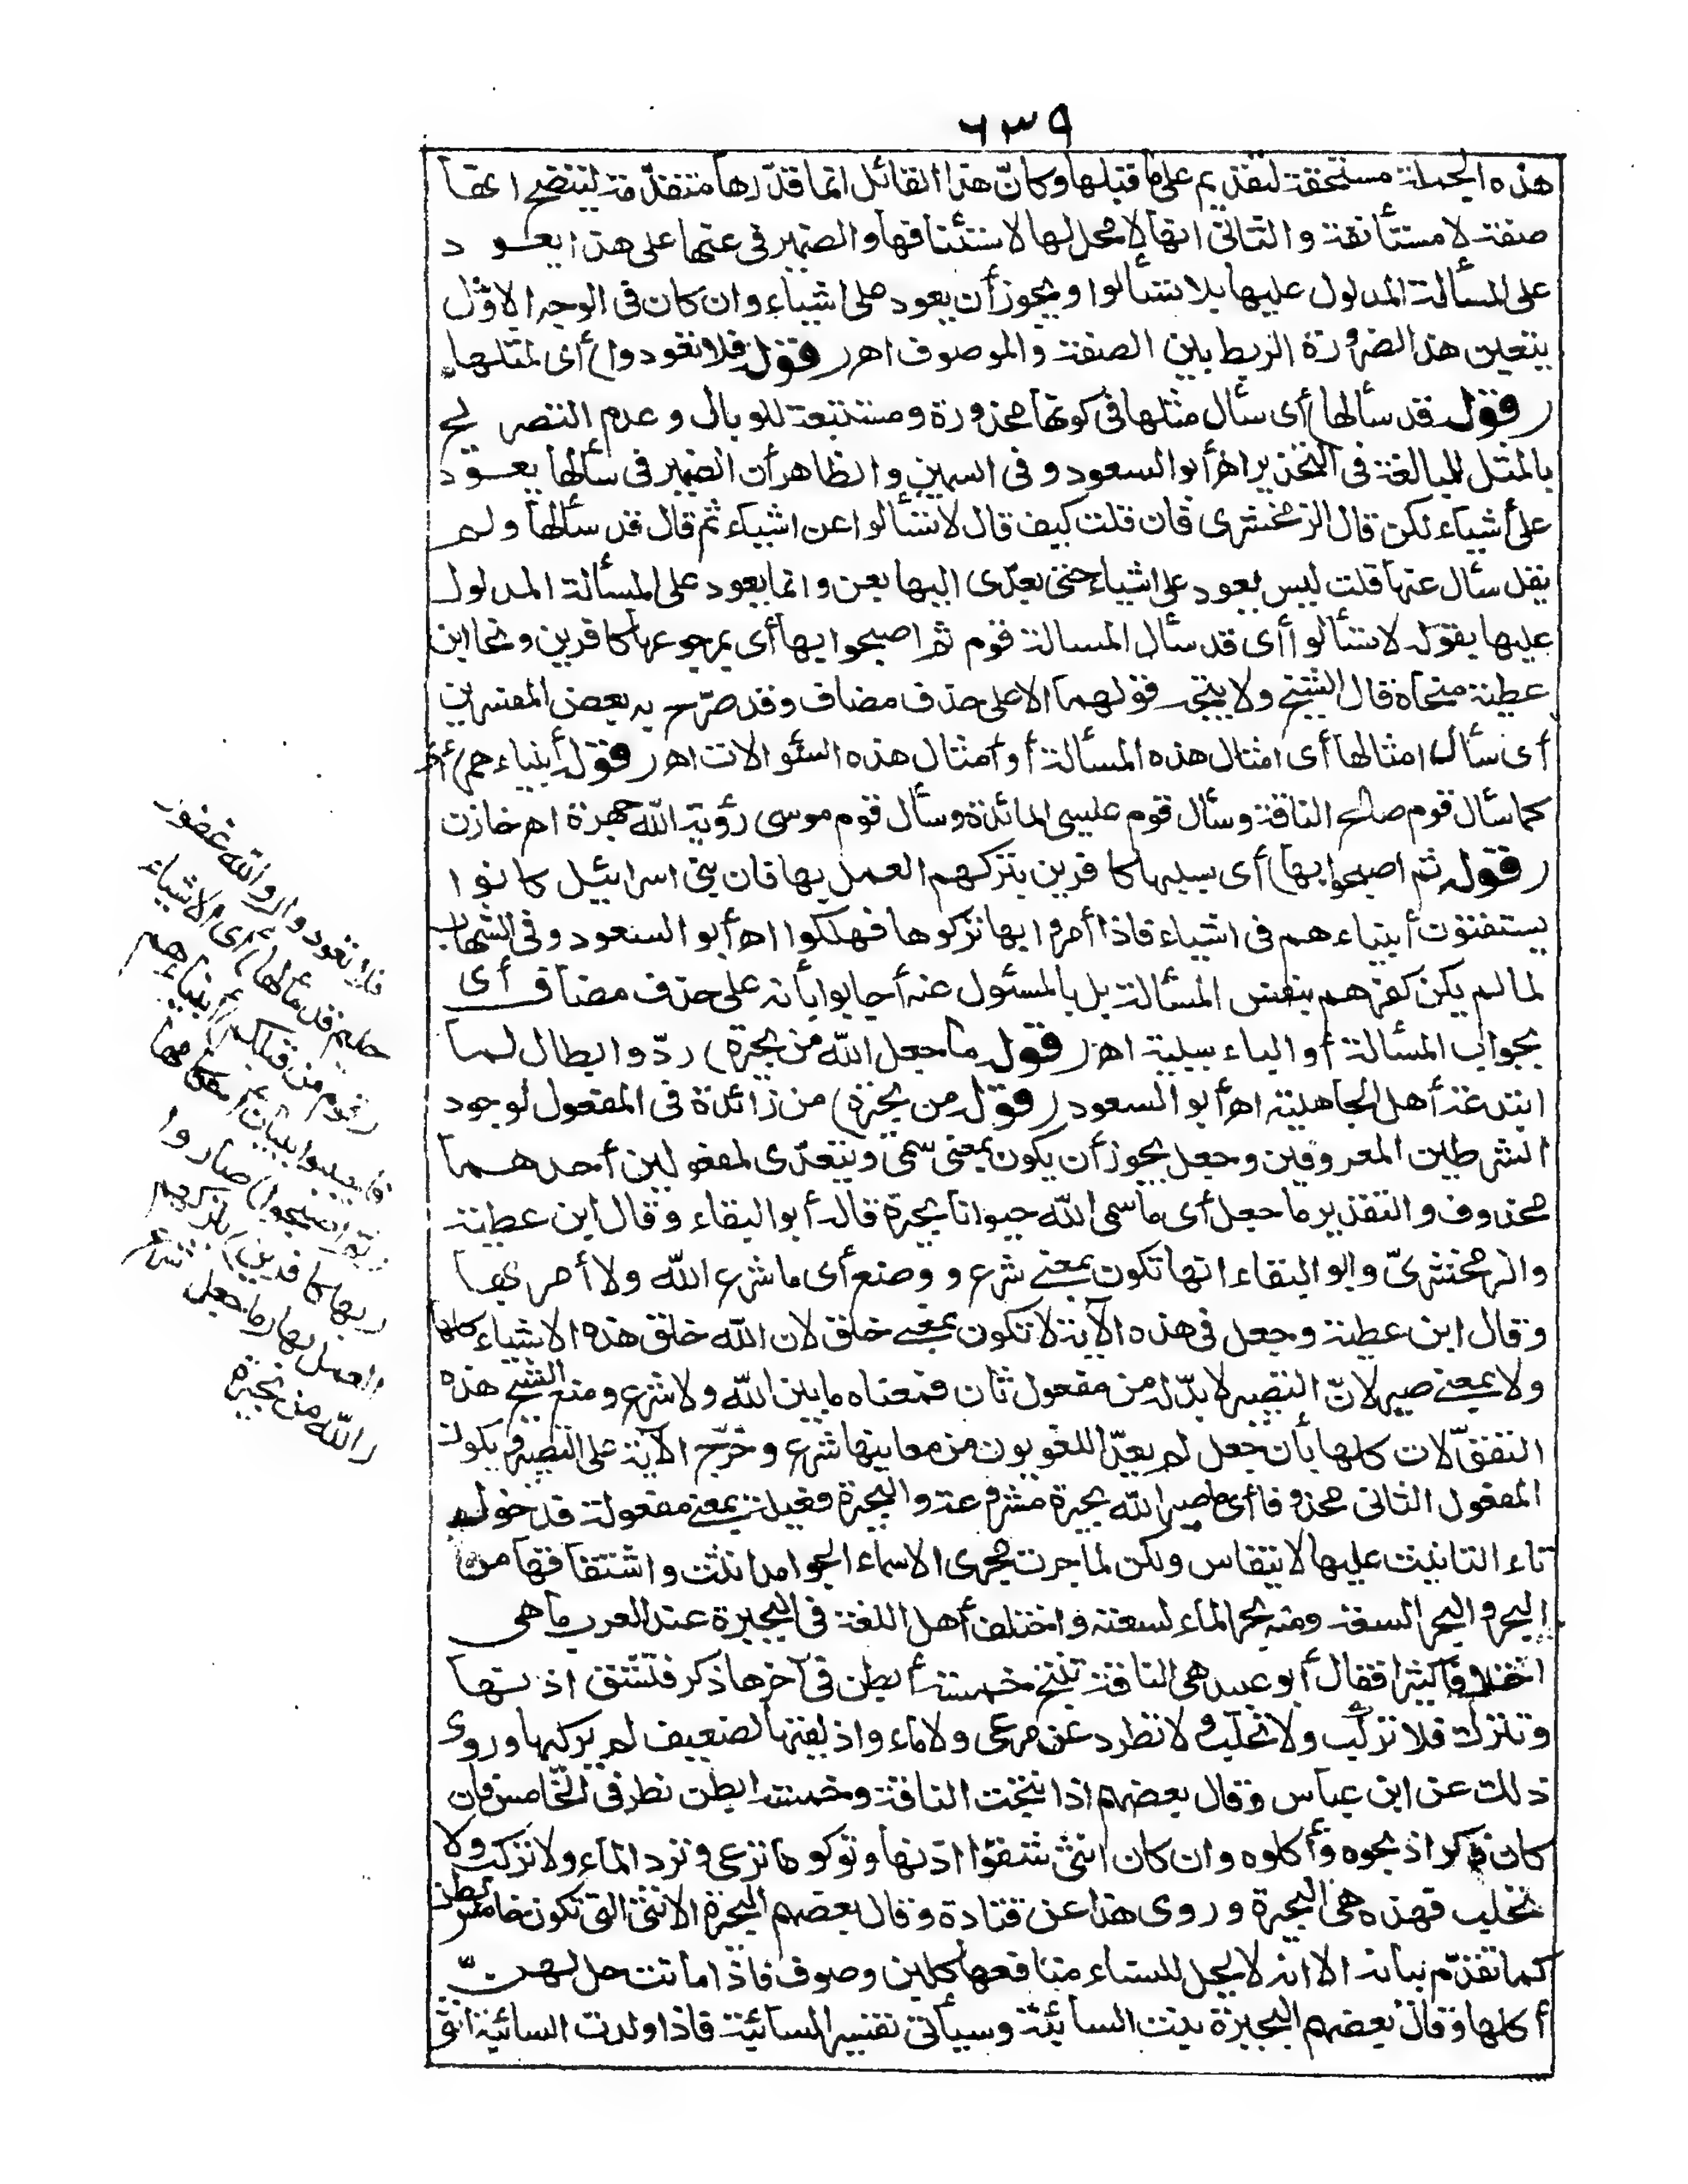 ٦٣٩
هذه الجملة مستحقة لتقديم على ما قبلها وكانّ هذا القائل انما قدّرها متقدّمة ليتضح انها
صفة لا مستأنفة والثانى انها لا محل لها لاستئنافها والضمير فى عنها على هذا يعود
على المسألة المدلول عليها بلا تسألوا ويجوز أن يعود على اشياء وان كان فى الوجه الاوّل
يتعين هذا لضرورة الربط بين الصفة والموصوف اهر (قوله فلا تعودوا) أى لمثلها
(قوله قد سألها) أى سأل مثلها فى كونها محذورة ومستتبعة للوبال وعدم التصريح
بالمثل للمبالغة فى التحذير اهـ أبو السعود وفى السمين والظاهر أن الضمير فى سألها يعود
على أشياء لكن قال الزمخشرى فان قلت كيف قال لا تسألوا عن اشياء ثم قال قد سألها ولم
يقل سأل عنها قلت ليس يعود على اشياء حتى يعدّى اليها بعن وانما يعود على المسألة المدلول
عليها بقوله لا تسألوا أى قد سأل المسالة قوم ثم اصبحوا بها أى بمرجوعها كافرين ونحا ابن
عطية منحاه قال الشيخ ولا يتجه قولهما الا على حذف مضاف وقد صرّح به بعض المفسرين
أى سأل امثالها أى امثال هذه المسألة أو أمثال هذه السئوالات اهر (قوله أنبياءهم) أى
كما سأل قوم صالح الناقة وسأل قوم عيسى المائدة وسأل قوم موسى رؤية الله جهرة اهـ خازن
(قوله ثم اصبحوا بها) أى بسببها كافرين بتركهم العمل بها فان بنى اسرائيل كانوا
يستفتون أنبياءهم فى اشياء فاذا أمروا بها تركوها فهلكوا اهـ أبو السعود وفى الشهاب
لما لم يكن كفرهم بنفس المسألة بل بالمسئول عنه أجابوا بأنه على حذف مضاف أى
بجواب المسألة أو الباء سببية اهر (قوله ما جعل الله من بحيرة) ردّ وابطال لما
ابتدعه أهل الجاهلية اهـ أبو السعود (قوله من بحيرة) من زائدة فى المفعول لوجود
الشرطين المعروفين وجعل يجوز أن يكون بمعنى سمّى ويتعدّى لمفعولين أحدهما
محذوف والتقدير ما جعل أى ما سمى الله حيوانا بحيرة قاله أبو البقاء وقال ابن عطية
والزمخشرىّ وابو البقاء انها تكون بمعنى شرع ووضع أى ما شرع الله ولا أمر بها
وقال ابن عطية وجعل فى هذه الآية لا تكون بمعنى خلق لان الله خلق هذه الاشياء كلها
ولا بمعنى صير لانّ التصيير لا بدّ له من مفعول ثان فمعناه ما بين الله ولا شرع ومنع الشيخ هذه
التقوّلات كلها بأن جعل لم يعدّ اللغويون من معانيها شرع وخرّج الآية على التصيير ويكون
المفعول الثانى محذوفا أى ما صير الله بحيرة مشروعة والبحيرة فعيلة بمعنى مفعولة فدخول
تاء التانيث عليها لا ينقاس ولكن لما جرت مجرى الاسماء الجوامد انثت واشتقاقها من
البحر والبحر السعة ومنه بحر الماء لسعته واختلف أهل اللغة فى البحيرة عند العرب ما هى
اختلافا كثيرا فقال أبو عبيد هى الناقة تنتج خمسة أبطن فى آخرها ذكر فتشق اذنها
وتترك فلا تركب ولا تحلب ولا تطرد عن مرعى ولا ماء واذ لقيها الضعيف لم يركبها وروى
ذلك عن ابن عباس وقال بعضهم اذا نتجت الناقة وخمسة ابطن نظر فى الخامس فان
كان ذكرا ذبحوه وأكلوه وان كان انثى شقوا اذنها وتركوها ترعى وترد الماء ولا تركب ولا
تحلب فهذه هى البحيرة وروى هذا عن قتادة وقال بعضهم البحيرة الانثى التى تكون خامس بطن
كما تقدّم بيانه الا انه لا يحل للنساء منافعها كلبن وصوف فاذا ماتت حل لهنّ
أكلها وقال بعضهم البحيرة بنت السائبة وسيأتى تفسير السائبة فاذا ولدت السائبة انثى
فلا تعودوا (والله غفور
حليم قد سألها) أى الاشياء
(قوم من قبلكم) أنبياءهم
فاجيبوا ببيان أحكامها
(ثم اصبحوا) صاروا
(بها كافرين) بتركهم
العمل بها (ما جعل) شرع
(الله من بحيرة